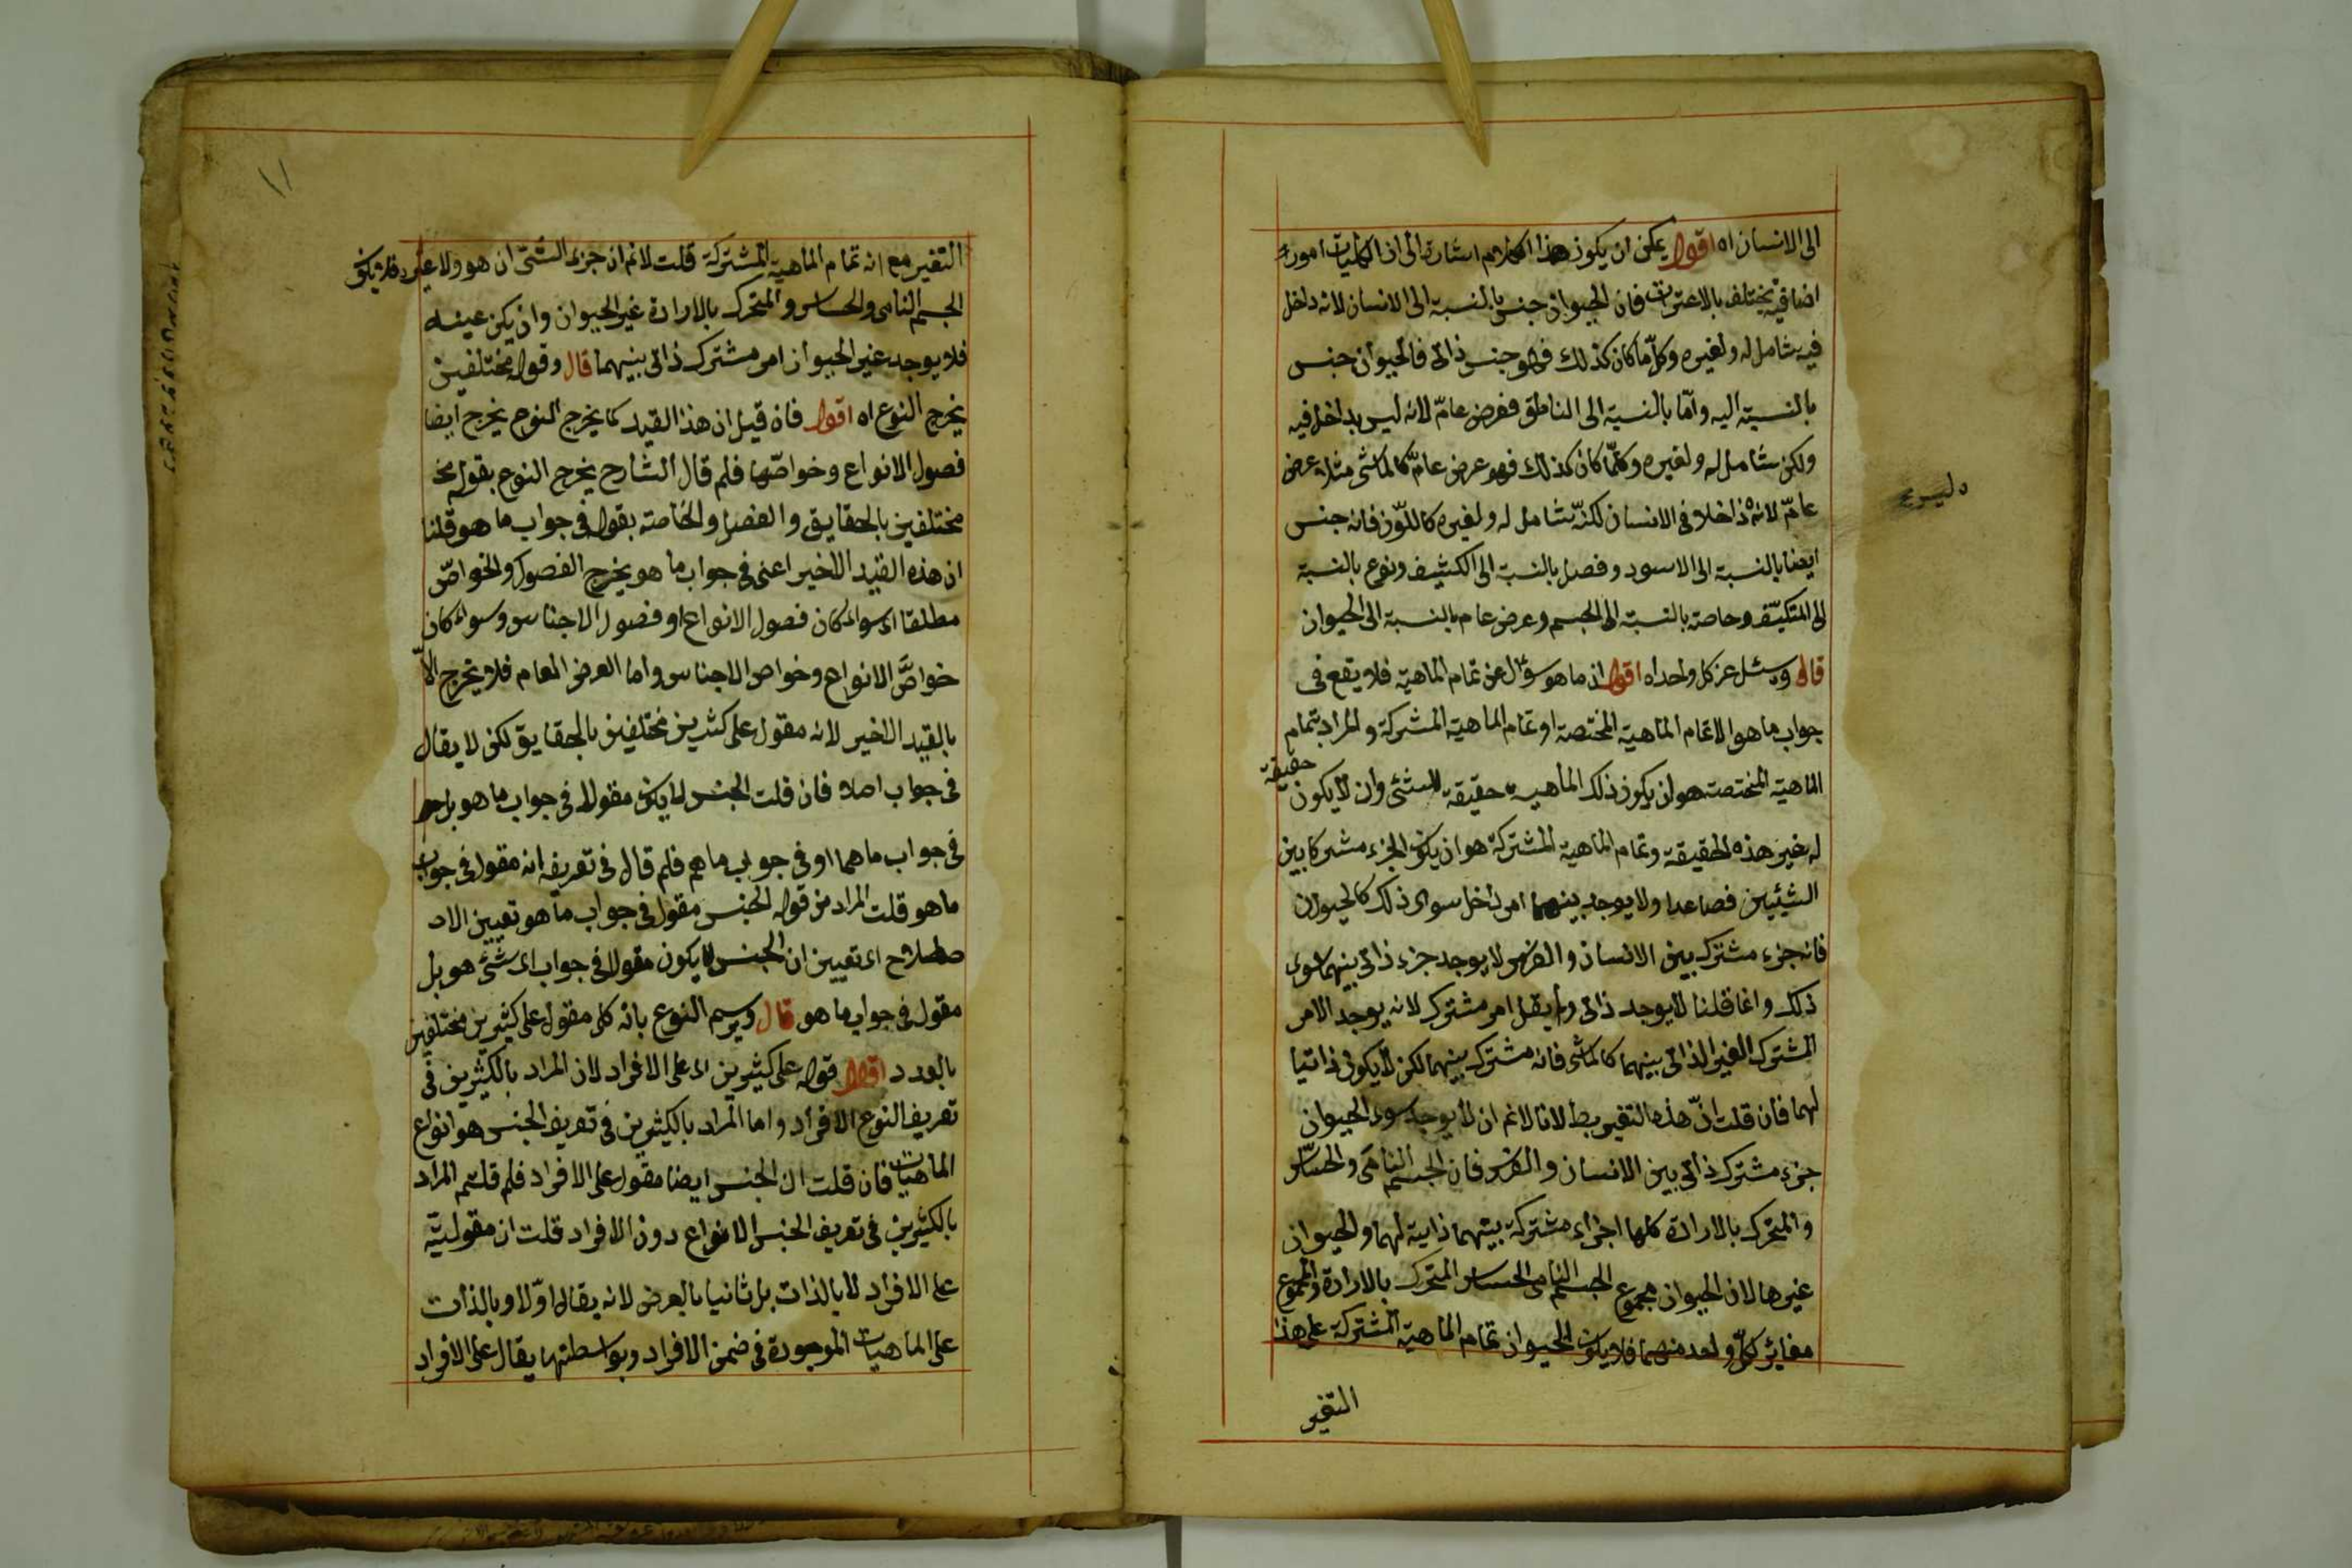 الى الانسان اه اقول يمكن ان يكون هذا الكلام اشارة الى ان الكليات امور
اضافية يختلف بالاعتبارات فان الحيوان جنس بالنسبة الى الانسان لانه داخل
فيه شامل له ولغيره وكل ما كان كذلك فهو جنس ذاتى فالحيوان جنس
بالنسبة اليه واما بالنسبة الى الناطق فعرض عامّ لانه ليس بداخل فيه
ولكن شامل له ولغيره وكلّما كان كذلك فهو عرض عامّ كالماشى مثلا عرض
عامّ لانه داخلا فى الانسان لكنّه شامل له ولغيره كاللّون فانه جنس
ايضا بالنسبة الى الاسود وفصل بالنسبة الى الكثيف ونوع بالنسبة
الى المتكيّف وخاصة بالنسبة الى الجسم وعرض عام بالنسبة الى الحيوان
قال وسئل عن كل واحد اه اقول ان ما هو سؤال عن تمام الماهية فلا يقع فى
جواب ما هو الا تمام الماهية المختصة او تمام الماهية المشتركة والمراد بتمام
الماهية المختصة هو ان يكون ذلك الماهية حقيقة للشئ وان لا يكون حقيقة
له غير هذه الحقيقة وتمام الماهية المشتركة هو ان يكون الجزء مشتركا بين
الشيئين فصاعدا ولا يوجد بينهما امر داخل سوى ذلك كالحيوان
فانه جزء مشترك بين الانسان والفرس لا يوجد جزء ذاتى بينهما سوى
ذلك وانما قلنا لا يوجد ذاتى ولم يقل امر مشترك لانه يوجد الامر
المشترك الغير الذاتى بينهما كالماشى فانه مشترك بينهما لكن لا يكون ذاتيا
لهما فان قلت انّ هذه التغير بط لانا لا نم ان لا يوجد سوى الحيوان
جزء مشترك ذاتى بين الانسان والفرس فان الجسم النامى والحسّاس
والمتحرك بالارادة كلها اجزاء مشتركة بينهما ذاتية لهما والحيوان
غيرها لان الحيوان مجموع الجسم النامى الحساس المتحرك بالارادة والمجموع
مغائر كلّ واحد منهما فلا يكون الحيوان تمام الماهية المشتركة على هذا
التغير
١١
التغير مع انه تمام الماهية المشتركة قلت لا نم ان جزء الشئ ان هو ولا غير فلا يكون
الجسم النامى والحساس والمتحرك بالارادة غير الحيوان وان يكن عينه
فلا يوجد غير الحيوان امر مشترك ذاتى بينهما قال وقوله مختلفين
يخرج النوع اه اقول فان قيل ان هذا القيد كما يخرج النوع يخرج ايضا
فصول الانواع وخواصّها فلم قال الشارح يخرج النوع بقوله مخ
مختلفين بالحقايق والفصل والخاصة بقوله فى جواب ما هو قلنا
ان هذه القيد الاخير اعنى فى جواب ما هو يخرج الفصول والخواصّ
مطلقا اى سواء كان فصول الانواع او فصول الاجناس وسواء كان
خواصّ الانواع وخواص الاجناس واما العرض العام فلا يخرج الاّ
بالقيد الاخير لانه مقول على كثيرين مختلفين بالحقايق لكن لا يقال
فى جواب اصلا فان قلت الجنس لا يكون مقولا فى جواب ما هو بل
فى جواب ما هما او فى جواب ما هم فلم قال فى تعريفه انه مقول فى جواب
ما هو قلت المراد من قوله الجنس مقول فى جواب ما هو تعيين الا
صطلاح اى تعيين ان الجنس لا يكون مقولا فى جواب اى شئ هو بل
مقول فى جواب ما هو قال ويرسم النوع بانه كلى مقول على كثيرين مختلفين
بالعدد اقول قوله على كثيرين اى على الافراد لان المراد بالكثيرين فى
تعريف النوع الافراد واما المراد بالكثيرين فى تعريف الجنس هو انواع
الماهيات فان قلت ان الجنس ايضا مقول على الافراد فلم قلتم المراد
بالكثيرين فى تعريف الجنس الانواع دون الافراد قلت ان مقوليّة
على الافراد لا بالذات بل ثانيا بالعرض لانه يقال اوّلا وبالذات
على الماهيات الموجودة فى ضمن الافراد وبواسطتها يقال على الافراد